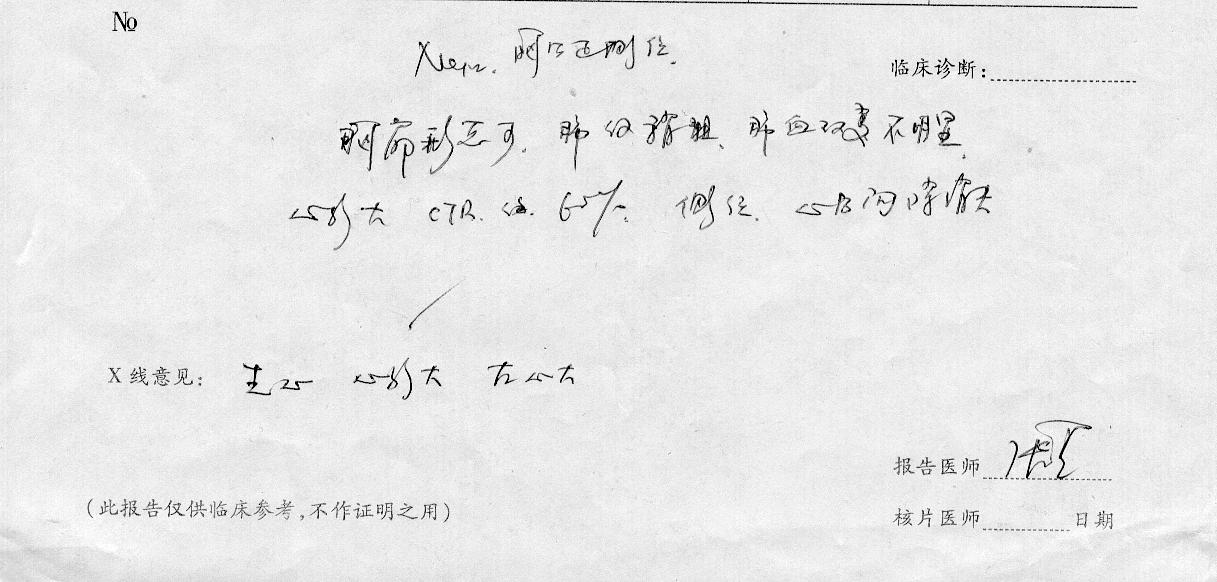 №
胸片正侧位.
临床诊断:
胸廓形态可. 肺纹稍粗、肺血改变不明显.
心影大 CTR. 值. 65%. 侧位. 心后间隙消失
X线意见: 心影大 左心大
报告医师
(此报告仅供临床参考,不作证明之用)
核片医师 日期